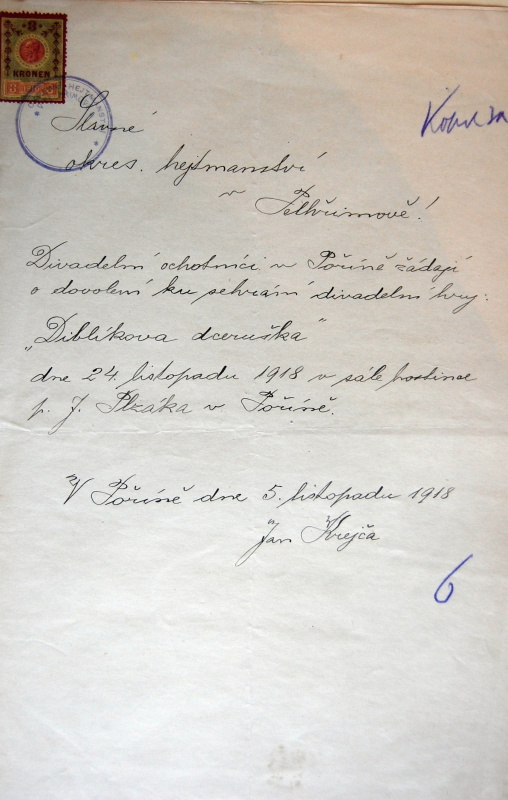 8
KRONEN
Slavné
okres. hejtmanství
v Pelhřimově!
Divadelní ochotníci v Poříně žádají
o dovolení ku sehrání divadelní hry:
„Diblíkova dceruška"
dne 24. listopadu 1918 v sále hostince
p. J. Plzáka v Poříně.
V Poříně dne 5. listopadu 1918
Jan Krejča
6